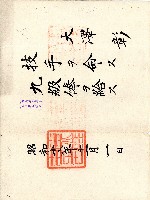 大澤彰
技手ヲ命ス
九級俸ヲ給ス
昭和十年十一月一日